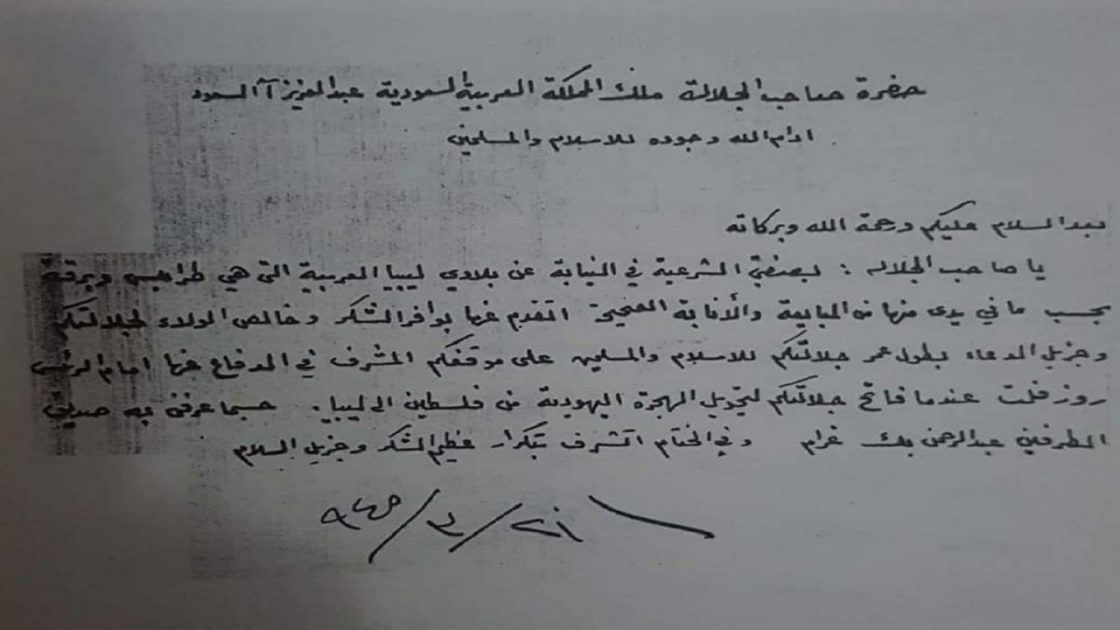 حضرة صاحب الجلالة ملك المملكة العربية السعودية عبد العزيز آل السعود
ادام الله وجوده للاسلام والمسلمين .
بعد السلام عليكم ورحمة الله وبركاته
يا صاحب الجلالة : بصفتي الشرعية في النيابة عن بلادي ليبيا العربية التي هي طرابلس وبرقة
بحسب ما في يدي منها من المبايعة والأنابة الصحيحة اتقدم عنها بوافر الشكر وخالص الولاء لجلالتكم
وجزيل الدعاء بطول عمر جلالتكم للاسلام والمسلمين على موقفكم المشرف في الدفاع عنها امام الرئيس
روزفلت عندما فاتح جلالتكم لتحويل الهجرة اليهودية من فلسطين الى ليبيا . حسبما عرفني به صديق
الطرفين عبد الرحمن بك عزام وفي الختام اتشرف بتكرار عظيم الشكر وجزيل السلام
٩٤٥/٣/٢١